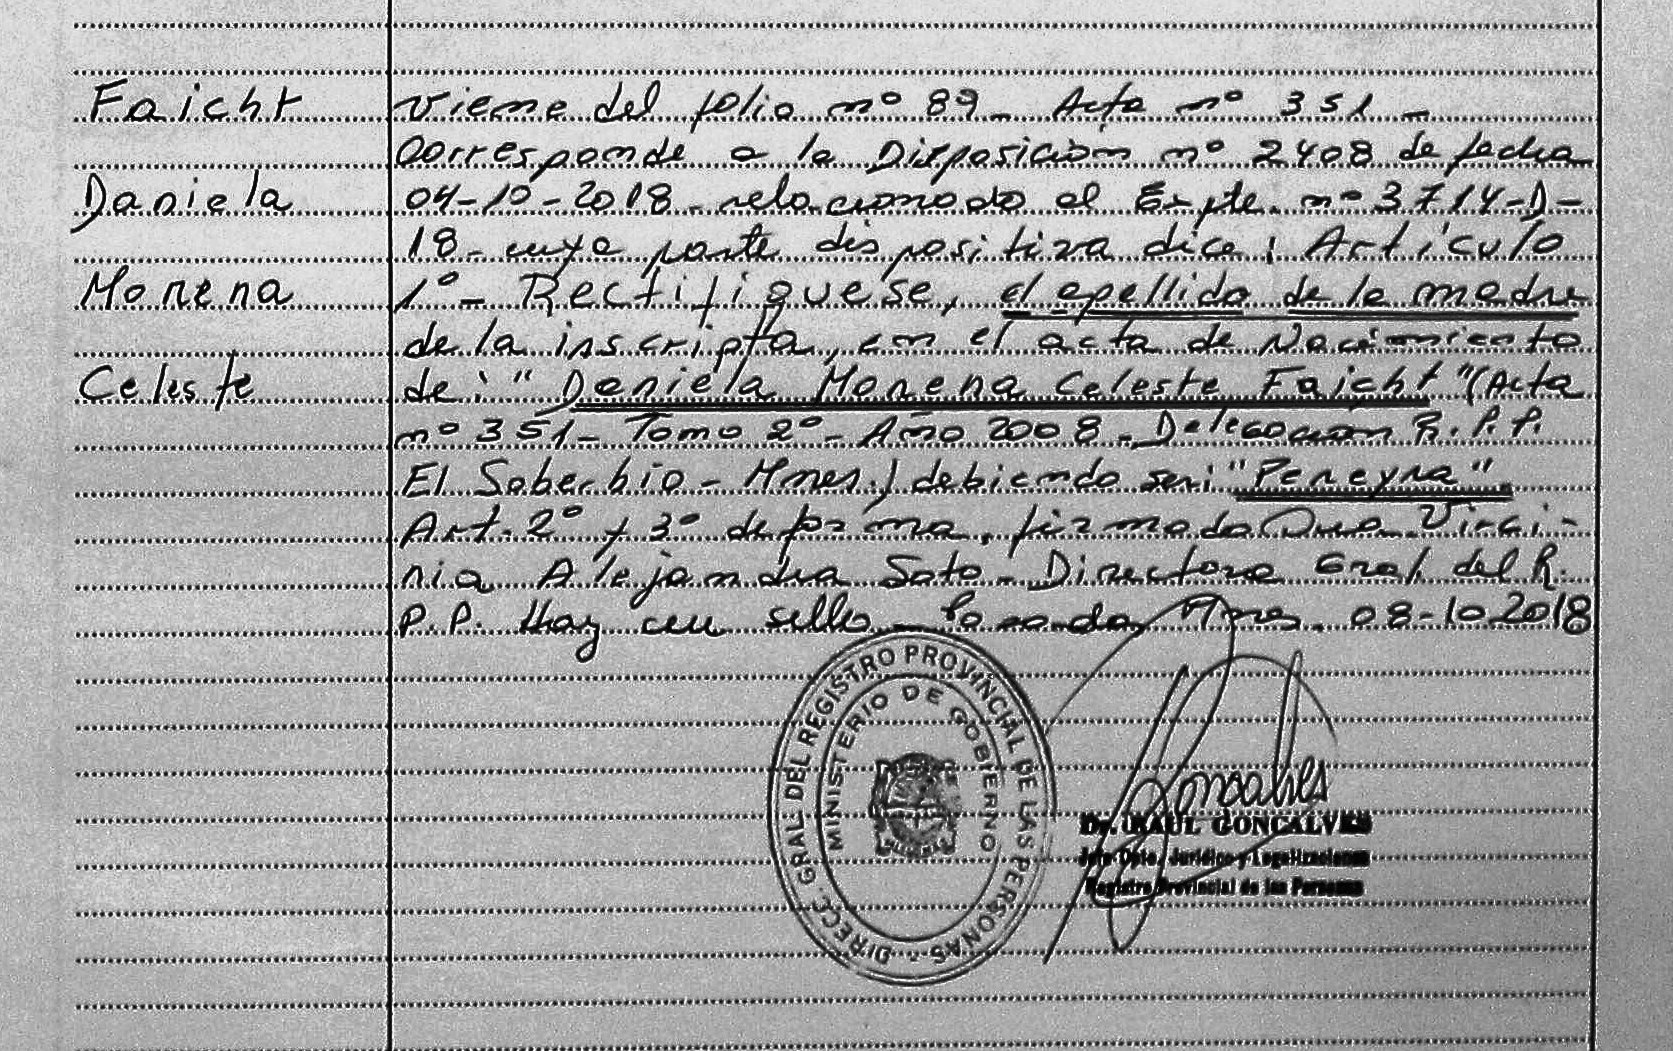 Faicht
Daniela
Morena
Celeste
Viene del folio nº 89 - Acta nº 351 -
Corresponde a la Disposición nº 2408 de fecha
04-10-2018 - relacionado al Expte. nº 3714-D-
18 - cuya parte dispositiva dice: Artículo
1º - Rectifíquese, el apellido de la madre
de la inscripta, en el acta de Nacimiento
de: "Daniela Morena Celeste Faicht" (Acta
nº 351 - Tomo 2º - Año 2008 - Delegación R. P. P.
El Soberbio - Mnes.) debiendo ser: "Pereyra".
Art. 2º y 3º de forma. firmado Dra. Virgi-
nia Alejandra Soto - Directora Gral. del R.
P. P. Hay un sello - Posadas, Mnes. 08-10-2018
DIRECC. GRAL DEL REGISTRO PROVINCIAL DE LAS PERSONAS
MINISTERIO DE GOBIERNO
Goncalves
Dr. RAUL GONCALVES
Jefe Dpto. Jurídico y Legalizaciones
Registro Provincial de las Personas